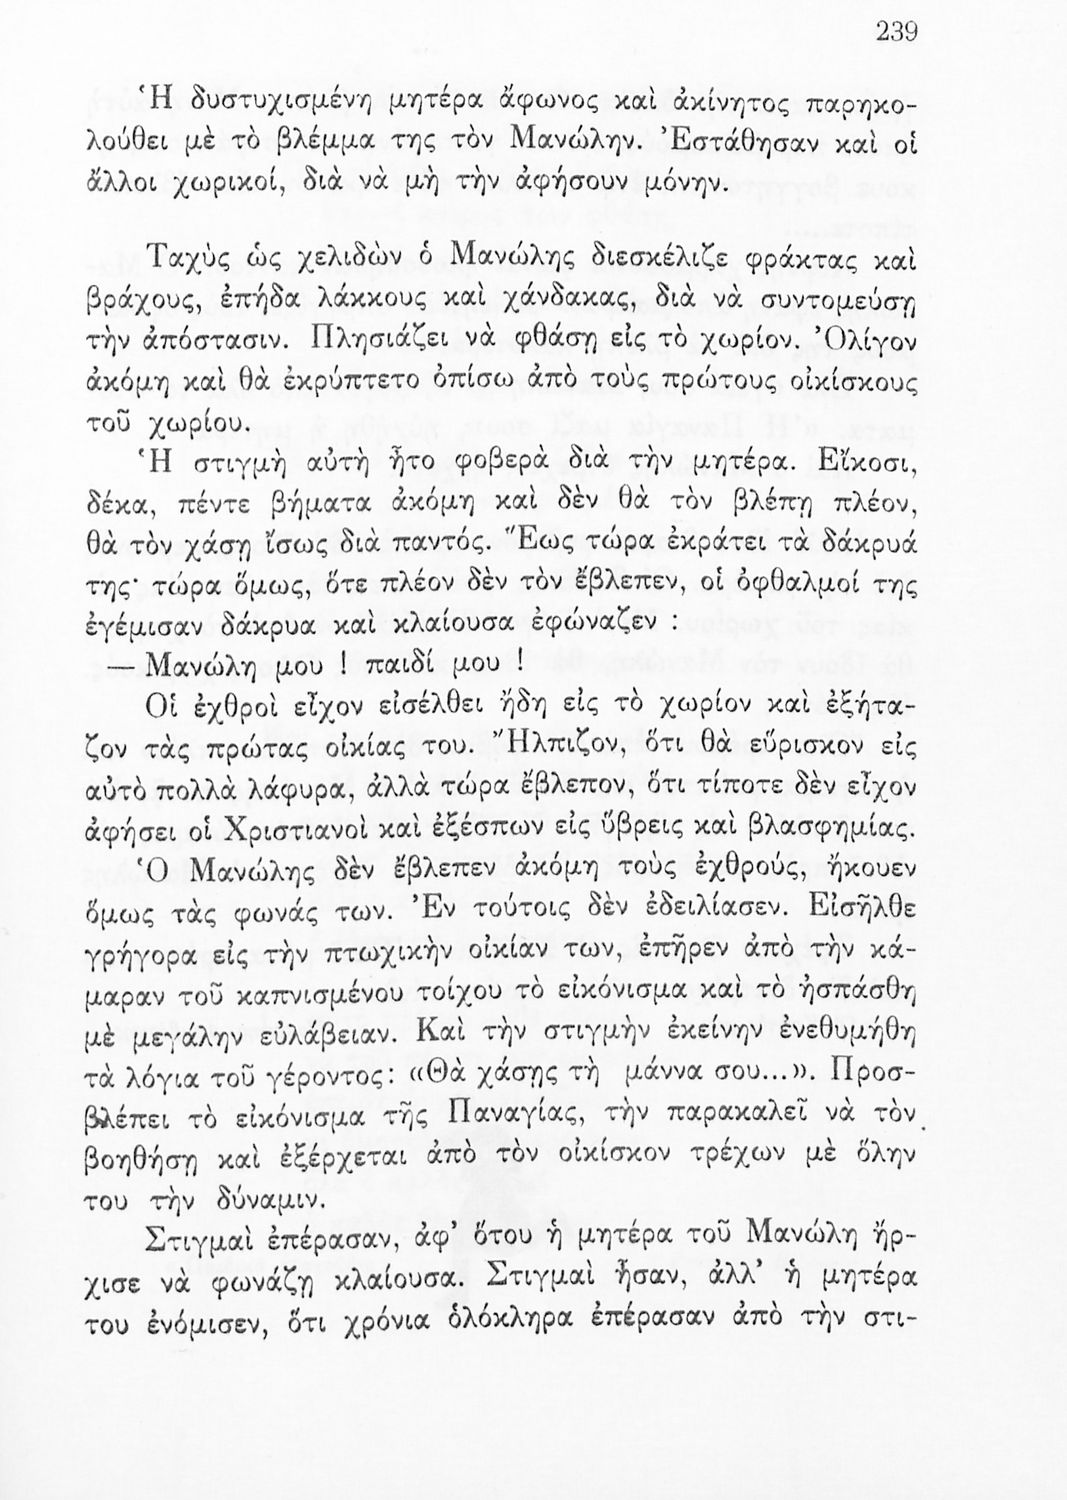 239
Ἡ δυστυχισμένη μητέρα ἄφωνος καὶ ἀκίνητος παρηκο-
λούθει μὲ τὸ βλέμμα της τὸν Μανώλην. Ἐστάθησαν καὶ οἱ
ἄλλοι χωρικοί, διὰ νὰ μὴ τὴν ἀφήσουν μόνην.
Ταχὺς ὡς χελιδὼν ὁ Μανώλης διεσκέλιζε φράκτας καὶ
βράχους, ἐπήδα λάκκους καὶ χάνδακας, διὰ νὰ συντομεύσῃ
τὴν ἀπόστασιν. Πλησιάζει νὰ φθάσῃ εἰς τὸ χωρίον. Ὀλίγον
ἀκόμη καὶ θὰ ἐκρύπτετο ὀπίσω ἀπὸ τοὺς πρώτους οἰκίσκους
τοῦ χωρίου.
Ἡ στιγμὴ αὐτὴ ἦτο φοβερὰ διὰ τὴν μητέρα. Εἴκοσι,
δέκα, πέντε βήματα ἀκόμη καὶ δὲν θὰ τὸν βλέπῃ πλέον,
θὰ τὸν χάσῃ ἴσως διὰ παντός. Ἕως τώρα ἐκράτει τὰ δάκρυά
της· τώρα ὅμως, ὅτε πλέον δὲν τὸν ἔβλεπεν, οἱ ὀφθαλμοί της
ἐγέμισαν δάκρυα καὶ κλαίουσα ἐφώναζεν :
— Μανώλη μου ! παιδί μου !
Οἱ ἐχθροὶ εἶχον εἰσέλθει ἤδη εἰς τὸ χωρίον καὶ ἐξήτα-
ζον τὰς πρώτας οἰκίας του. Ἤλπιζον, ὅτι θὰ εὕρισκον εἰς
αὐτὸ πολλὰ λάφυρα, ἀλλὰ τώρα ἔβλεπον, ὅτι τίποτε δὲν εἶχον
ἀφήσει οἱ Χριστιανοὶ καὶ ἐξέσπων εἰς ὕβρεις καὶ βλασφημίας.
Ὁ Μανώλης δὲν ἔβλεπεν ἀκόμη τοὺς ἐχθρούς, ἤκουεν
ὅμως τὰς φωνάς των. Ἐν τούτοις δὲν ἐδειλίασεν. Εἰσῆλθε
γρήγορα εἰς τὴν πτωχικὴν οἰκίαν των, ἐπῆρεν ἀπὸ τὴν κά-
μαραν τοῦ καπνισμένου τοίχου τὸ εἰκόνισμα καὶ τὸ ἠσπάσθη
μὲ μεγάλην εὐλάβειαν. Καὶ τὴν στιγμὴν ἐκείνην ἐνεθυμήθη
τὰ λόγια τοῦ γέροντος: «Θὰ χάσῃς τὴ μάννα σου...». Προσ-
βλέπει τὸ εἰκόνισμα τῆς Παναγίας, τὴν παρακαλεῖ νὰ τὸν
βοηθήσῃ καὶ ἐξέρχεται ἀπὸ τὸν οἰκίσκον τρέχων μὲ ὅλην
του τὴν δύναμιν.
Στιγμαὶ ἐπέρασαν, ἀφ’ ὅτου ἡ μητέρα τοῦ Μανώλη ἤρ-
χισε νὰ φωνάζῃ κλαίουσα. Στιγμαὶ ἦσαν, ἀλλ’ ἡ μητέρα
του ἐνόμισεν, ὅτι χρόνια ὁλόκληρα ἐπέρασαν ἀπὸ τὴν στι-